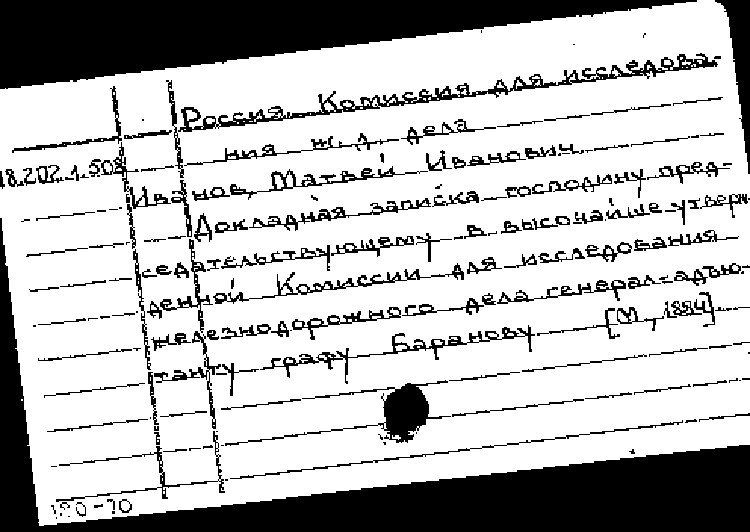 Россия. Комиссия для исследова-
ния ж.д. дела
18.202.1.508
Иванов, Матвей Иванович
Докладная записка господину пред-
седательствующему в высочайше утверж-
денной Комиссии для исследования
железнодорожного дела генерал-адъю-
танту графу Баранову [М, 1884]
-70